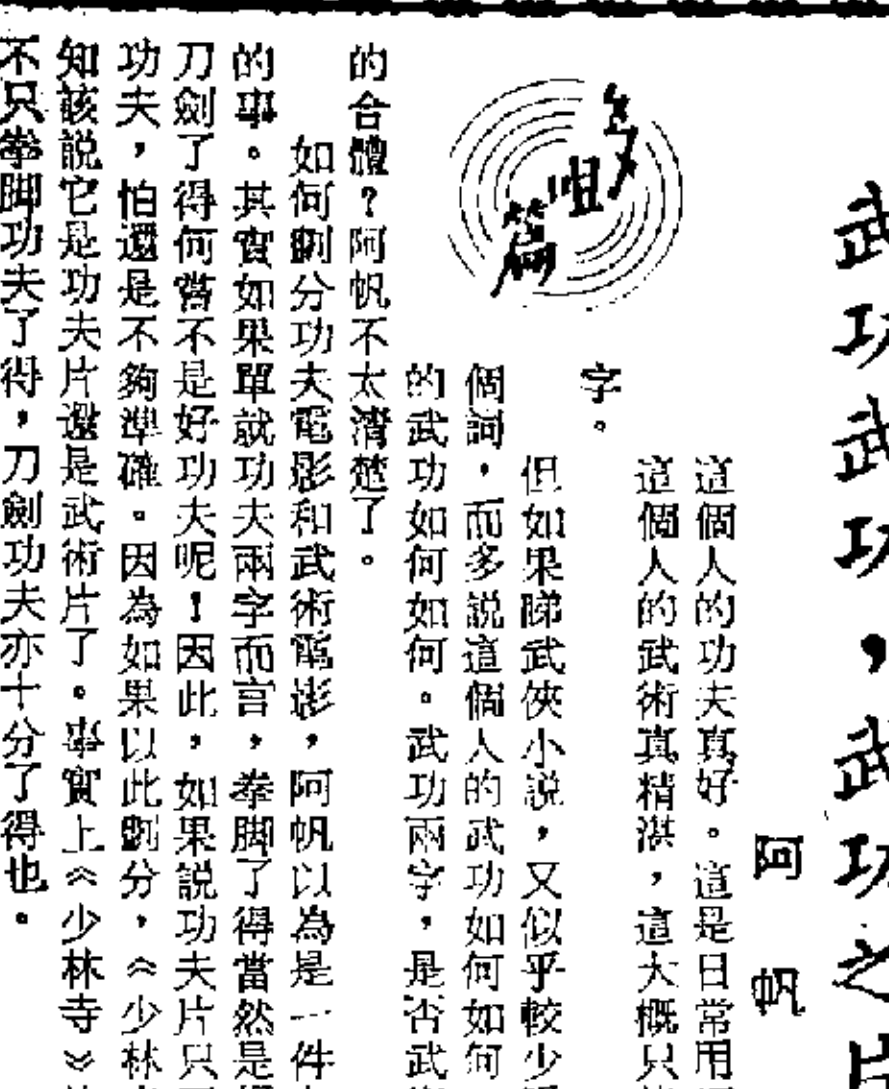 武功武功，武功之片
阿帆
這個人的功夫真好。這是日常用
這個人的武術真精湛，這大概只
字。
但如果睇武俠小説，又似乎較少
個詞，而多説這個人的武功如何如何
的武功如何如何。武功兩字，是否武
多咀篇
的合體？阿帆不太清楚了。
如何劃分功夫電影和武術電影，阿帆以為是一件
的事。其實如果單就功夫兩字而言，拳脚了得當然是
刀劍了得何嘗不是好功夫呢！因此，如果説功夫片只
功夫，怕還是不夠準確。因為如果以此劃分，《少林
知該説它是功夫片還是武術片了。事實上《少林寺》
不只拳脚功夫了得，刀劍功夫亦十分了得也。